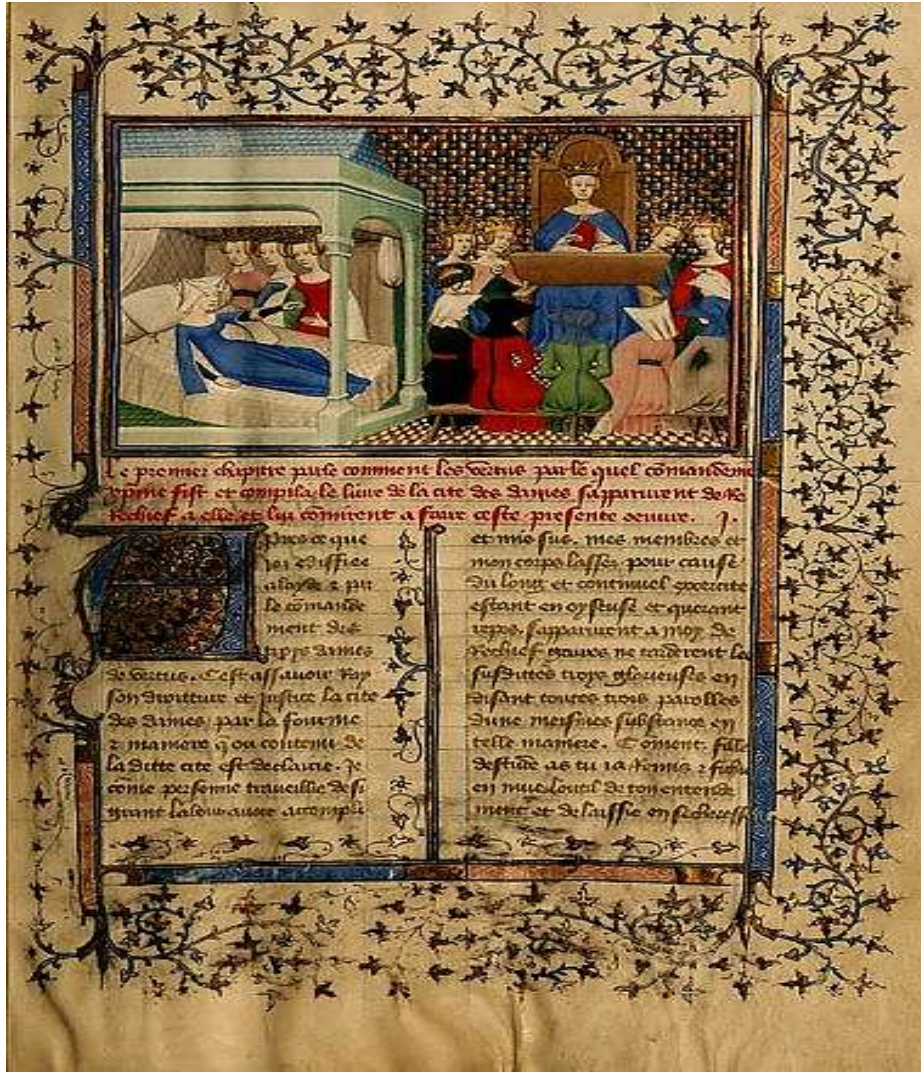 Le premier chapitre parle comment les vertus par le quel commandeme
xpine fist et compila le livre de la cite des dames sapparurent de Re
Rechief a elle et lui commirent a faire ceste presente oeuvre. J.
Apres ce que
jos ediffiee
a layde & par
le commande
ment des
trops dames
de vertus. Cest assavoir Ray
son droitture et Justice la cite
des dames par la fourme
& maniere q ou contenu de
la ditte cite est declairie. Je
come personne travaillie de si
grant labour avoir accompli
et mis sus. mes membres et
mon corps lassez pour cause
du long et continuel excercite
estant en oyseuse et querant
repos sapparurent a moy de
Rechief gaires ne tarderent les
susdittes troys glorieuses en
disant toutes trois parolles
dune meismes substance en
telle maniere. Coment fille
destude as tu ia Remis & fichie
en mue loutil de ton entende
ment et delaissie en secheresse